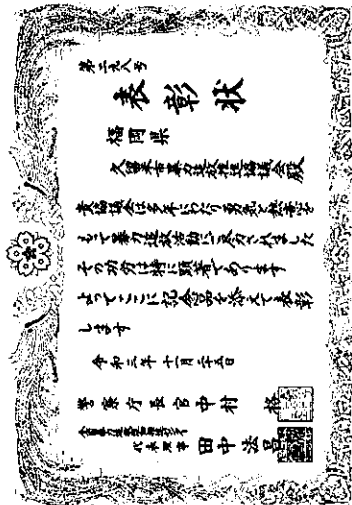 表彰状
福岡県
久留米市暴力追放推進協議会殿
貴協議会は多年にわたり勇気と熱意を
もって暴力追放活動に尽力されました
その功労は特に顕著であります
よってここに記念品を添えて表彰
します
令和三年十一月二十五日
警察庁長官 中村 格
全国暴力追放運動推進センター
代表理事 田中法昌